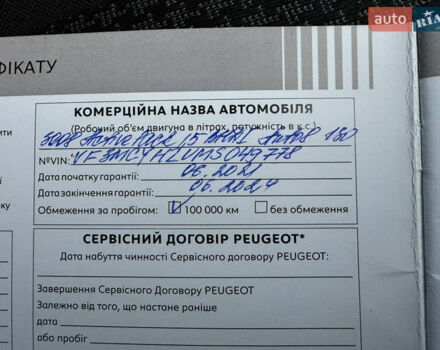 auto RIA
ФІКАТУ
КОМЕРЦІЙНА НАЗВА АВТОМОБІЛЯ
(Робочий об'єм двигуна в літрах, потужність в к.с.)
3008 Active Pack 1,5 130
ити
№VIN: VF3MCYHZUMS049778
Дата початку гарантії: 06.2021
Дата закінчення гарантії: 06.2024
ку
Обмеження за пробігом: 100 000 км без обмеження
СЕРВІСНИЙ ДОГОВІР PEUGEOT*
Дата набуття чинності Сервісного договору PEUGEOT:
Завершення Сервісного Договору PEUGEOT
Залежно від того, що настане раніше
дата
або пробіг